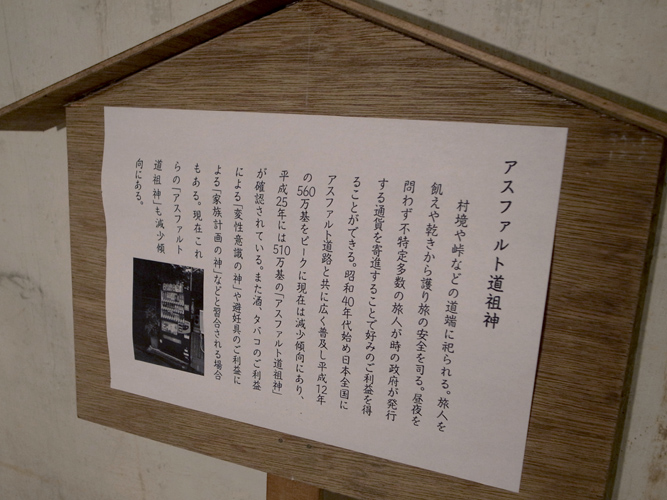 アスファルト道祖神
村境や峠などの道端に祀られる。旅人を
飢えや乾きから護り旅の安全を司る。昼夜を
問わず不特定多数の旅人が時の政府が発行
する通貨を寄進することで好みのご利益を得
ることができる。昭和40年代始め日本全国に
アスファルト道路と共に広く普及し平成12年
の560万基をピークに現在は減少傾向にあり、
平成25年には510万基の「アスファルト道祖神」
が確認されている。また酒、タバコのご利益
による「変性意識の神」や避妊具のご利益に
よる「家族計画の神」などと習合される場合
もある。現在これ
らの「アスファルト
道祖神」も減少傾
向にある。